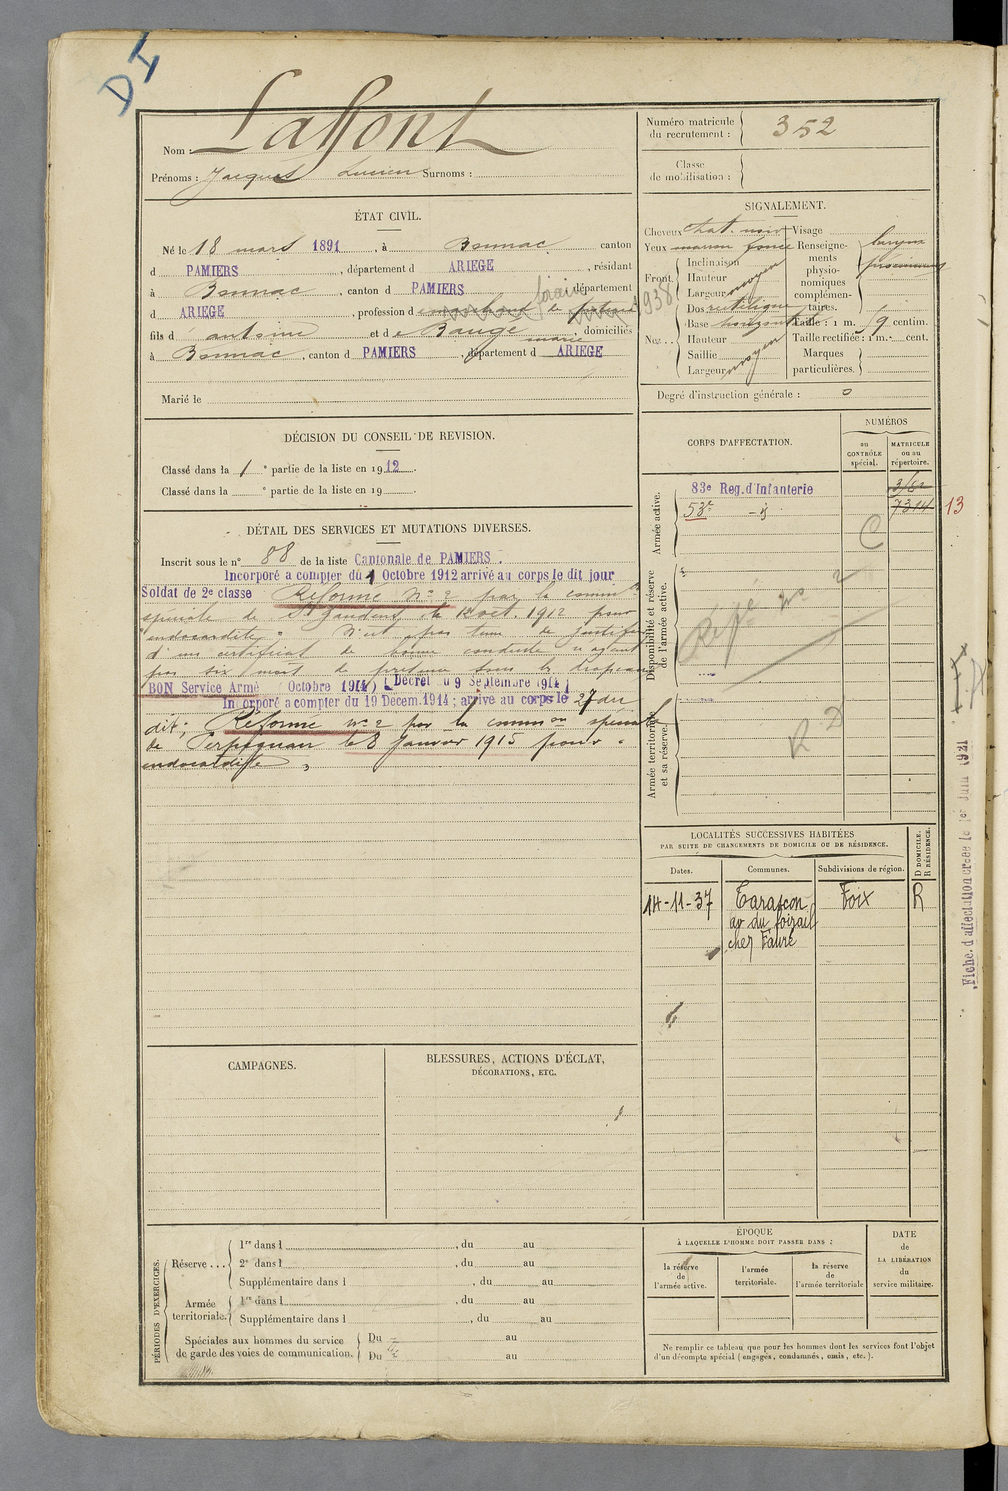 DI
Nom : Laffont
Prénoms : Jacques Lucien Surnoms :
Numéro matricule du recrutement : 352
Classe de mobilisation :
ÉTAT CIVIL.
Né le 18 mars 1891, à Bonnac canton
d PAMIERS, département d ARIEGE, résidant
à Bonnac, canton d PAMIERS département
d ARIEGE, profession de marchand de forain 1938
fils d' antoine et de Bauge marie domiciliés
à Bonnac, canton d PAMIERS, département d ARIEGE
Marié le
SIGNALEMENT.
Cheveux chat. noir
Yeux marron foncé
Front
Inclinaison
Hauteur moyen
Largeur
Nez...
Dos rectiligne
Base horizontale
Hauteur
Saillie moyen
Largeur
Visage
Renseignements physionomiques complémentaires.
Taille : 1 m. 59 centim.
Taille rectifiée : 1 m. cent.
Marques particulières.
Degré d'instruction générale : 0
DÉCISION DU CONSEIL DE REVISION.
Classé dans la 1 e partie de la liste en 1912.
Classé dans la e partie de la liste en 19
CORPS D'AFFECTATION.
NUMÉROS
au CONTRÔLE spécial.
MATRICULE ou au répertoire.
Armée active.
83e Reg. d'Infanterie
53e - id
7314
13
C
Disponibilité et réserve de l'armée active.
Réfé no 2
Armée territoriale et sa réserve.
R D
DÉTAIL DES SERVICES ET MUTATIONS DIVERSES.
Inscrit sous le n° 88 de la liste Cantonale de PAMIERS.
Incorporé a compter du 1 Octobre 1912 arrivé au corps le dit jour
Soldat de 2e classe Réformé N° 2 par la common
spéciale de St Gaudens le oct. 1912 pour
"endocardite" N'est pas tenu de justifier
d'un certificat de bonne conduite n'ayant
pas six mois de présence sous les drapeaux
BON Service Armé (Octobre 1914) (Décret du 9 Septembre 1914)
Incorporé a compter du 19 Decem. 1914 ; arrivé au corps le 27 du
dit; Réformé n° 2 par la common speciale
de Perpignan le 8 Janvier 1915 pour "
endocardite"
LOCALITÉS SUCCESSIVES HABITÉES
PAR SUITE DE CHANGEMENTS DE DOMICILE OU DE RÉSIDENCE.
Dates.
Communes.
Subdivisions de région.
D DOMICILE.
R RÉSIDENCE.
14-11-37 Tarascon Foix R
av du foirail
chez Fauré
Fiche d'affectation créée le 1er Juin 1921
CAMPAGNES.
BLESSURES, ACTIONS D'ÉCLAT,
DÉCORATIONS, ETC.
PÉRIODES D'EXERCICES.
Réserve ...
1re dans l , du au
2e dans l , du au
Supplémentaire dans l , du au
Armée territoriale.
1re dans l , du au
Supplémentaire dans l , du au
Spéciales aux hommes du service de garde des voies de communication.
Du au
Du au
ÉPOQUE
À LAQUELLE L'HOMME DOIT PASSER DANS :
la réserve de l'armée active.
l'armée territoriale.
la réserve de l'armée territoriale
DATE de LA LIBÉRATION du service militaire.
Ne remplir ce tableau que pour les hommes dont les services font l'objet
d'un décompte spécial (engagés, condamnés, omis, etc.).